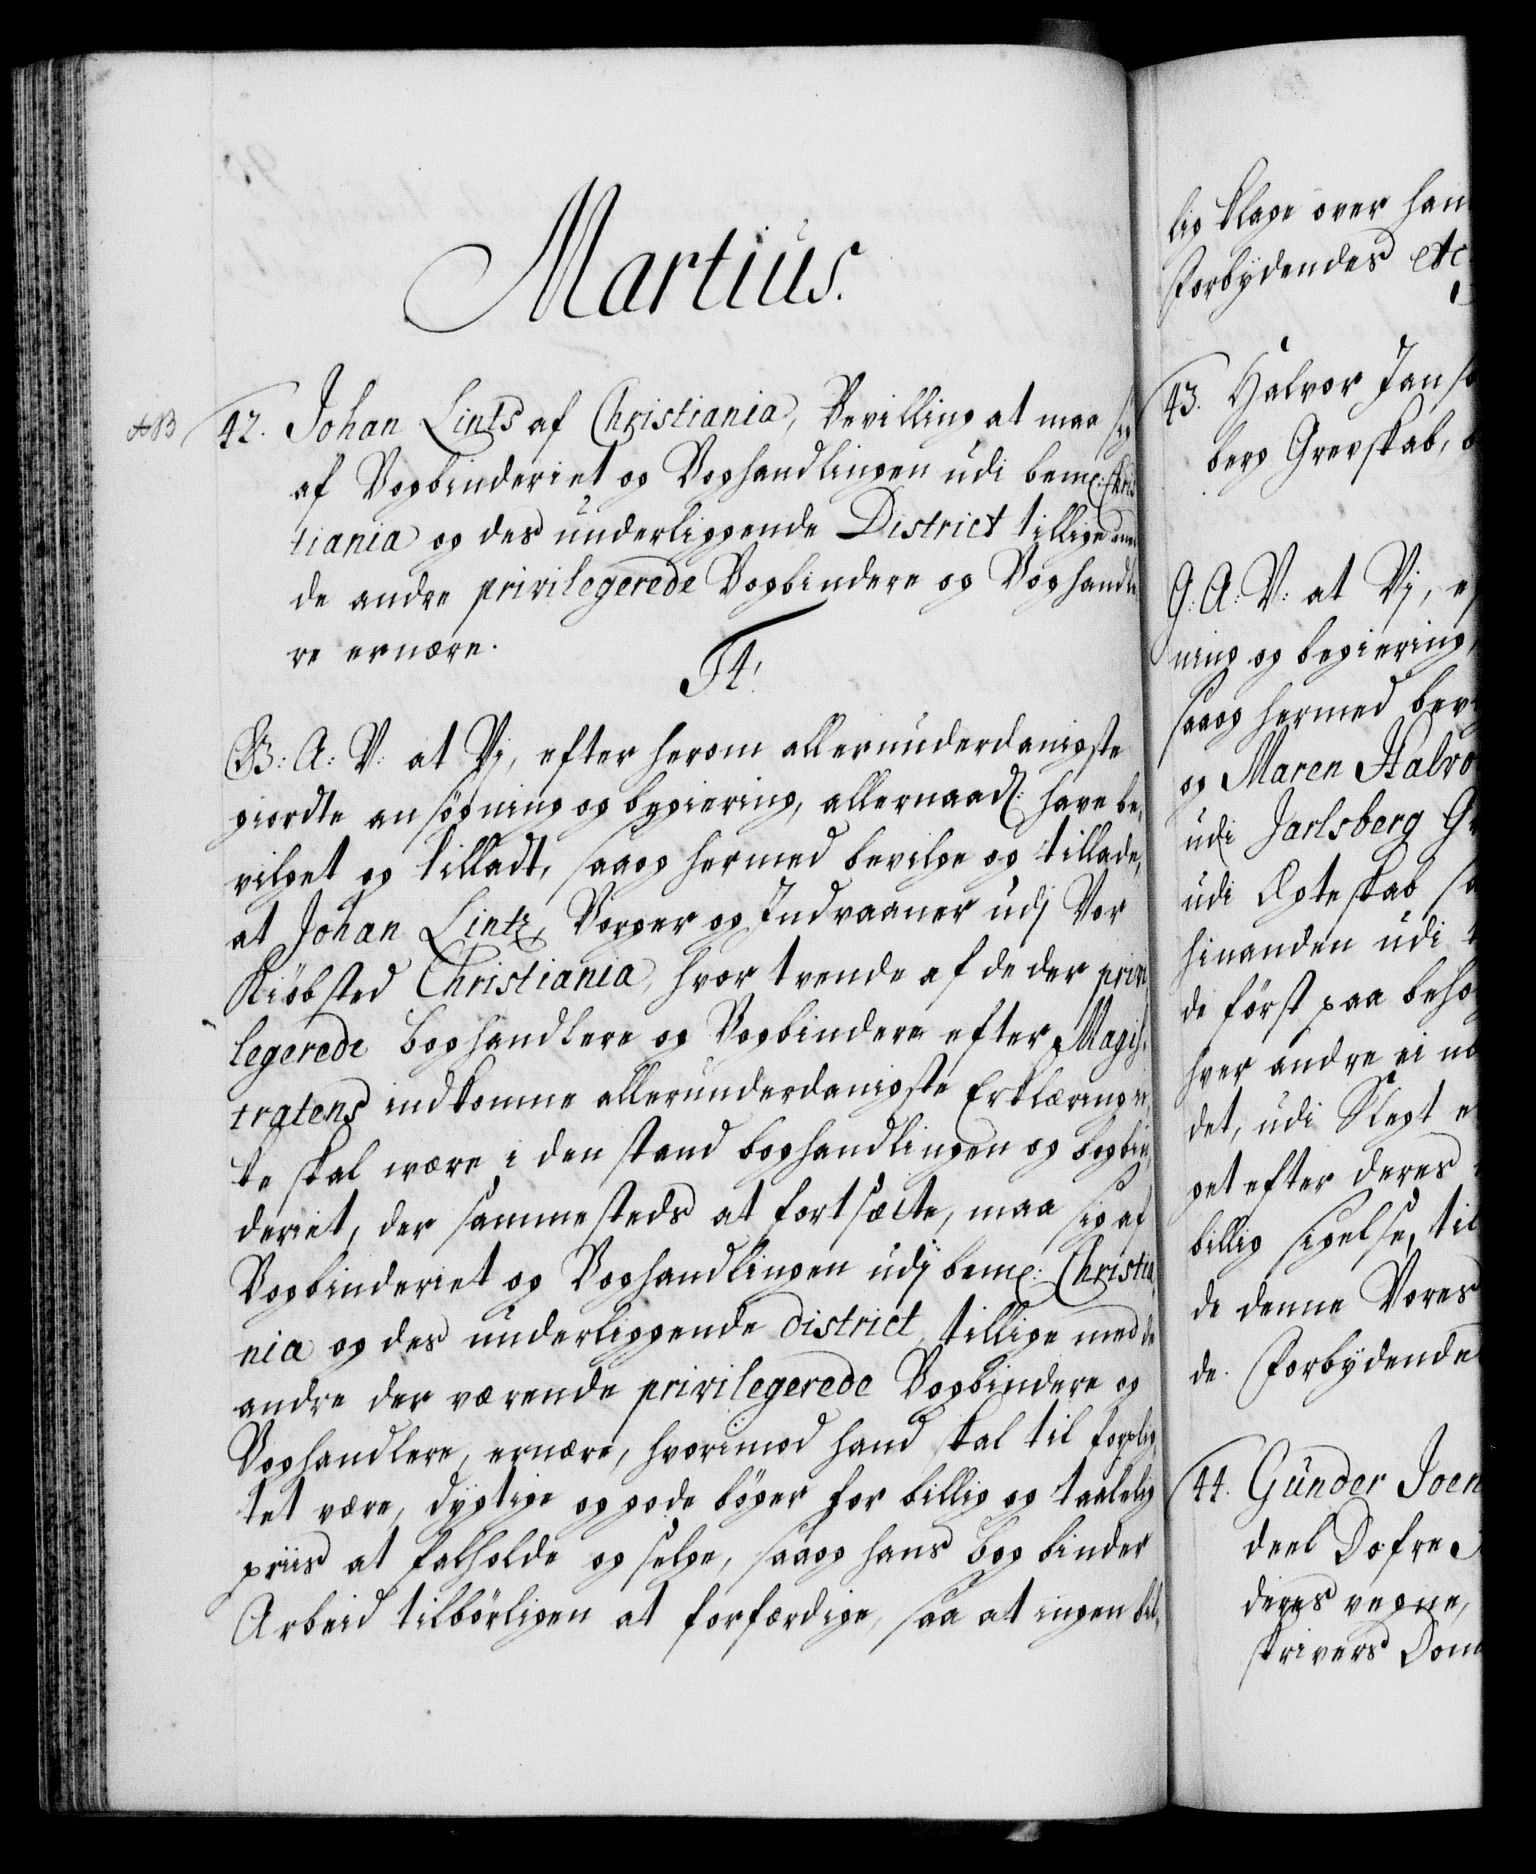 Martius.
NB 42. Johan Lints af Christiania, Bevilling at maa sig
af Bogbinderiet og Boghandlingen udi bemte: Chris
tiania og des underliggende District tillige med
de andre privilegerede Bogbindere og Boghandle,
re ernære.
F4.
G: A: V: at Vj, efter herom allerunderdanigste
giordte ansøgning og begiering, allernaadl: have be,
vilget og tilladt, saaog hermed bevilge og tillade,
at Johan Lintz, Borger og Indvaaner udj Vor
Kiöbsted Christiania, hvor tvende af de der privi,
legerede boghandlere og Bogbindere efter Magis,
tratens indkomne allerunderdanigste Erklæring ik,
ke skal være i den stand boghandlingen og bogbin,
deriet, der sammesteds at fortsætte, maa sig af
Bogbinderiet og Boghandlingen udj bemte: Christia,
nia og des underliggende district, tillige med de
andre der værende privilegerede Bogbindere og
Boghandlere, ernære, hvorimod hand skal til forplig,
tet være, dygtige og gode böger for billig og taalelig
priis at falholde og selge, saaog hans bogbinder
Arbeid tilbörligen at forfærdige, saa at ingen bil,
lig klage over han
Forbydendes etc
43. Halvor Jans
berg Grevskab, o
G: A: V: at Vj, e
ning og begiering,
saaog hermed bev
og Maren Halvo
udi Jarlsberg Gr
udi Ægteskab sa
hinanden udi
de först paa beho
hver andre ei na
det, udi Slegt e
get efter deres
billig sigelse, til
de denne Vores
de. Forbydende
44. Gunder Joen
deel Dofre
deres vegne,
skrivers Dom